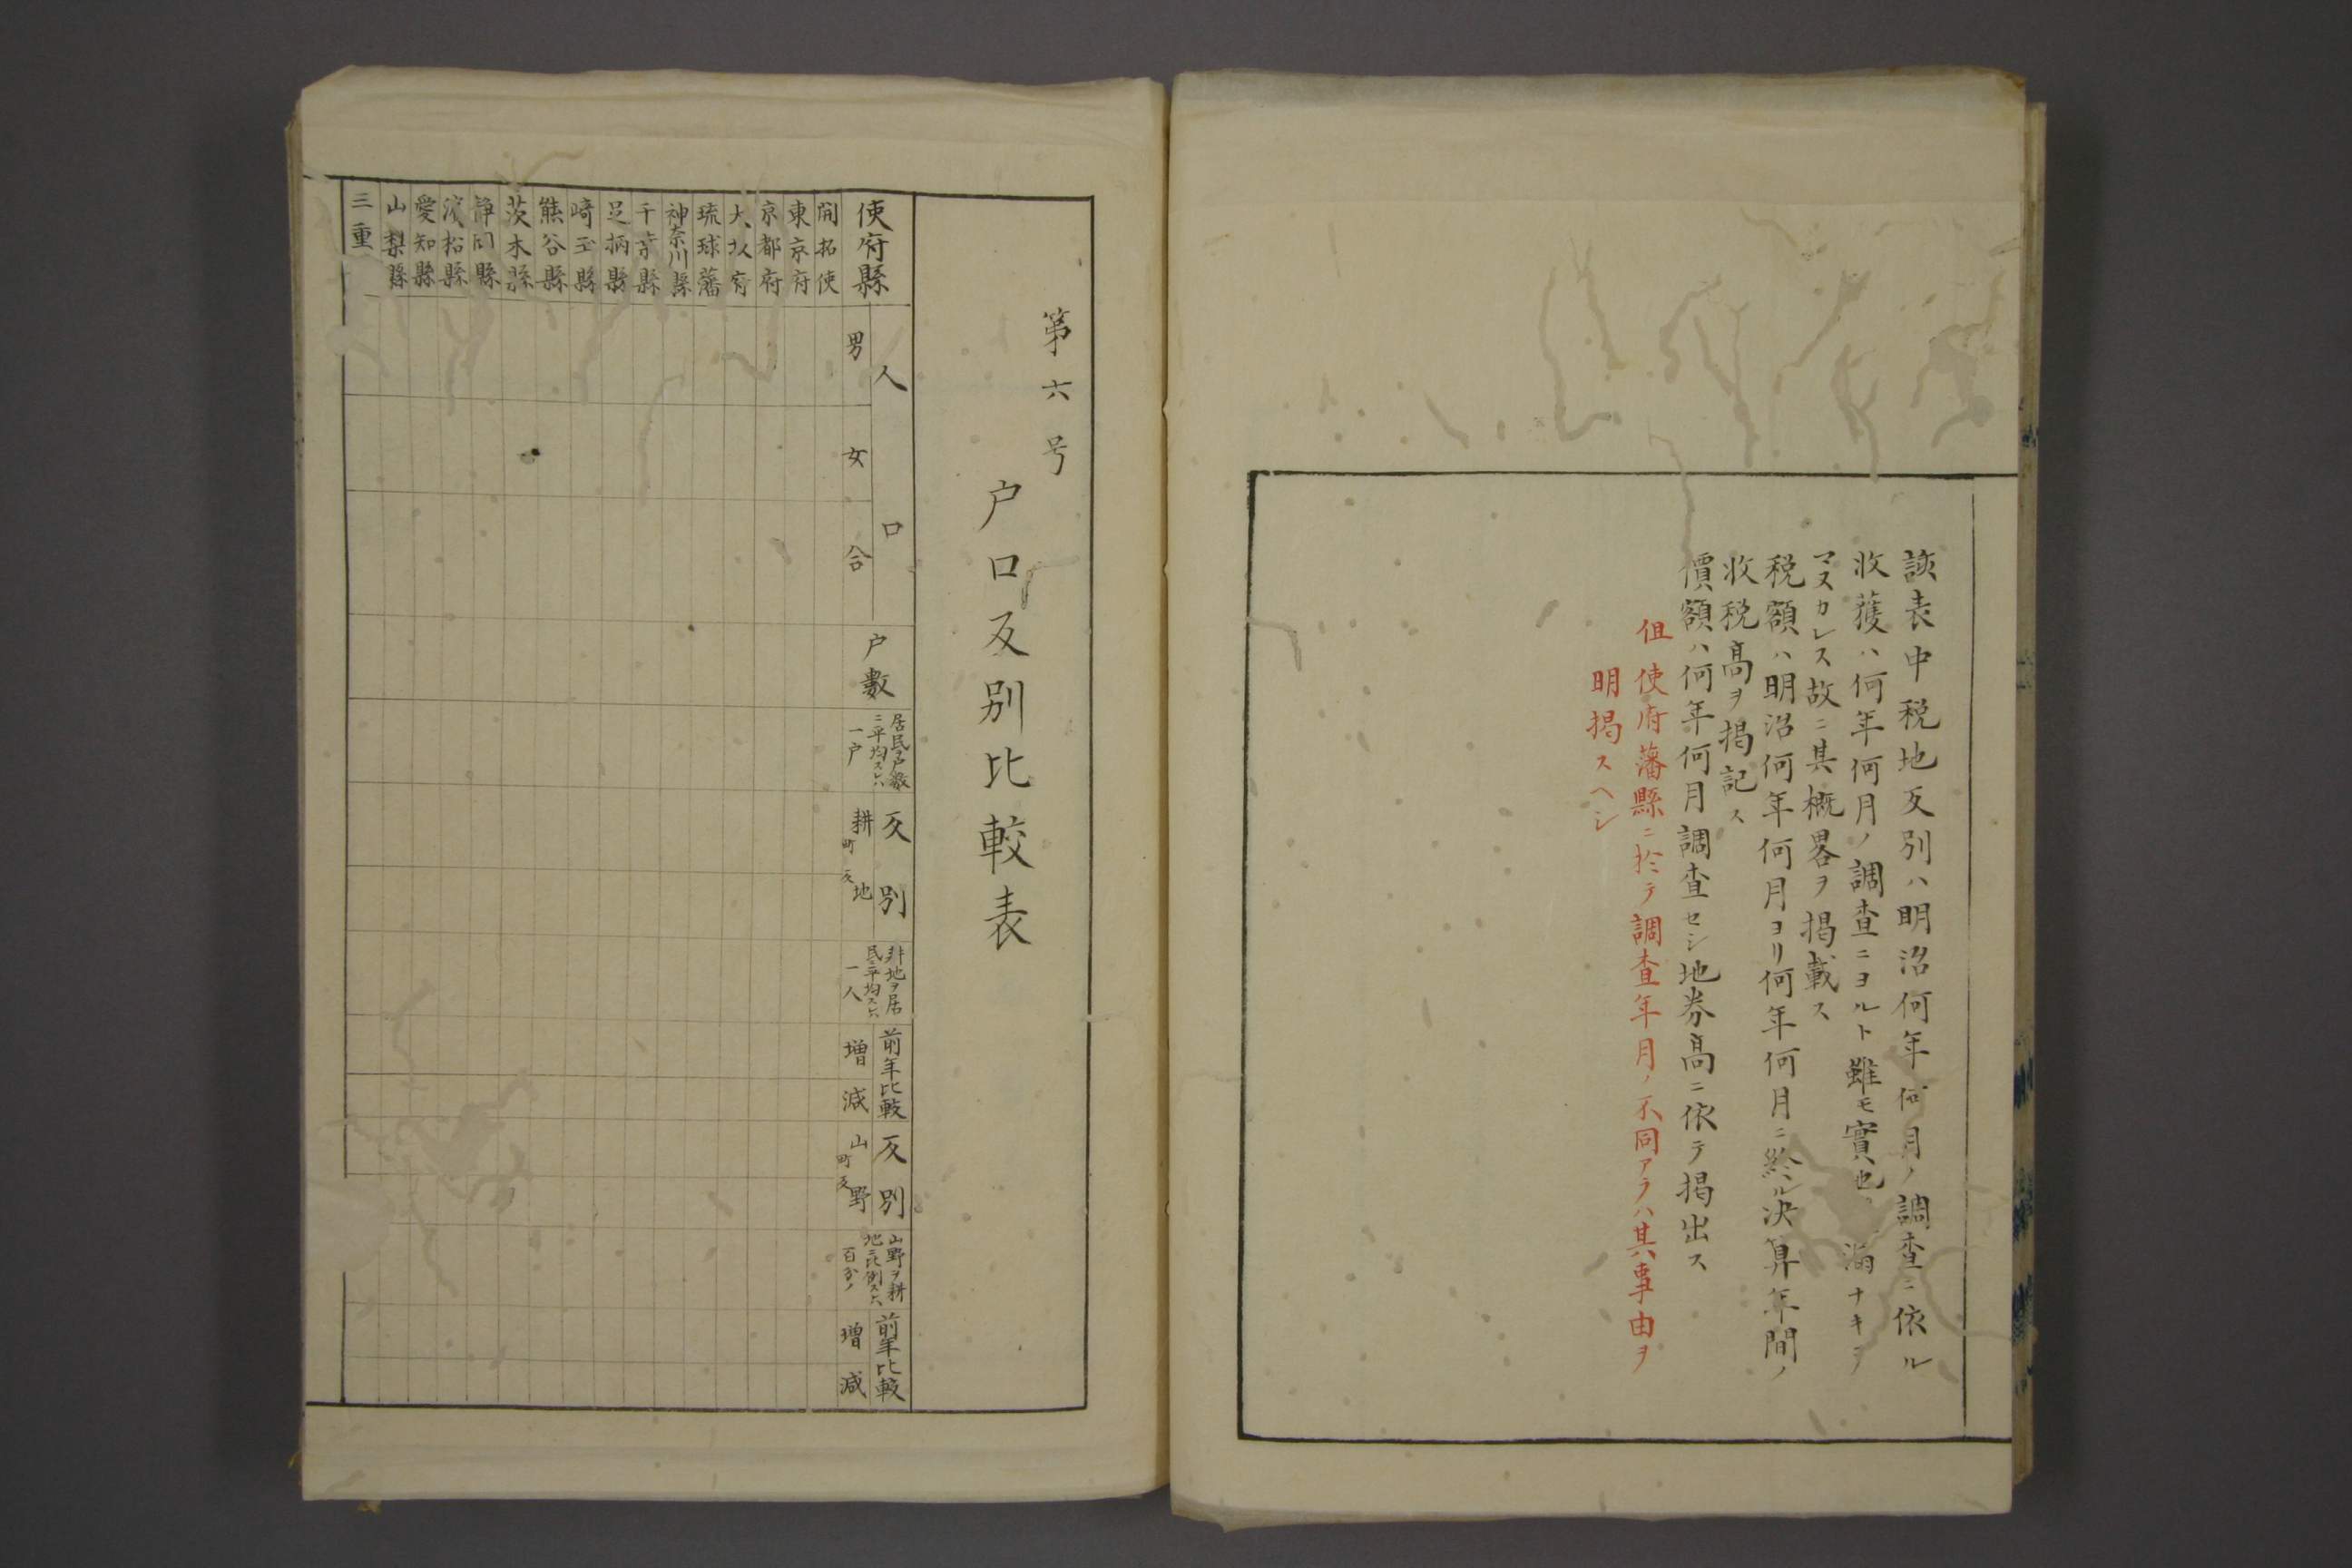 該表中税地反別ハ明治何年何月ノ調査ニ依ル
收獲ハ何年何月ノ調査ニヨルト雖モ實也 漏ナキヲ
マヌカレス故ニ其概畧ヲ掲載ス
税額ハ明治何年何月ヨリ何年何月ニ終ル決算年間ノ
收税高ヲ掲記ス
價額ハ何年何月調査セシ地券高ニ依テ掲出ス
但使府藩縣ニ於テ調査年月ノ不同アラハ其事由ヲ
明掲スヘシ
第六号
戸口反別比較表
使府縣
人口
男
女
合
戸數
居民ヲ戸數
ニ平均スレハ
一戸
反別
耕地
町反
耕地ヲ居
民ニ平均スレハ
一人
前年比較
増
減
反別
山野
町反
山野ヲ耕
地ニ比例スレハ
百分ノ
前年比較
増
減
開拓使
東京府
京都府
大坂府
琉球藩
神奈川縣
千葉縣
足柄縣
崎玉縣
熊谷縣
茨木縣
静岡縣
濱松縣
愛知縣
山梨縣
三重